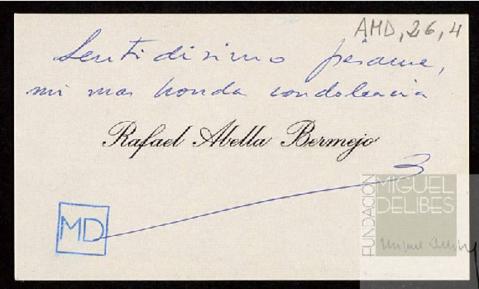 AMD, 26, 4
Sentidisimo pésame,
mi mas honda condolencia
Rafael Abella Bermejo
MD
FUNDACIÓN
MIGUEL
DELIBES